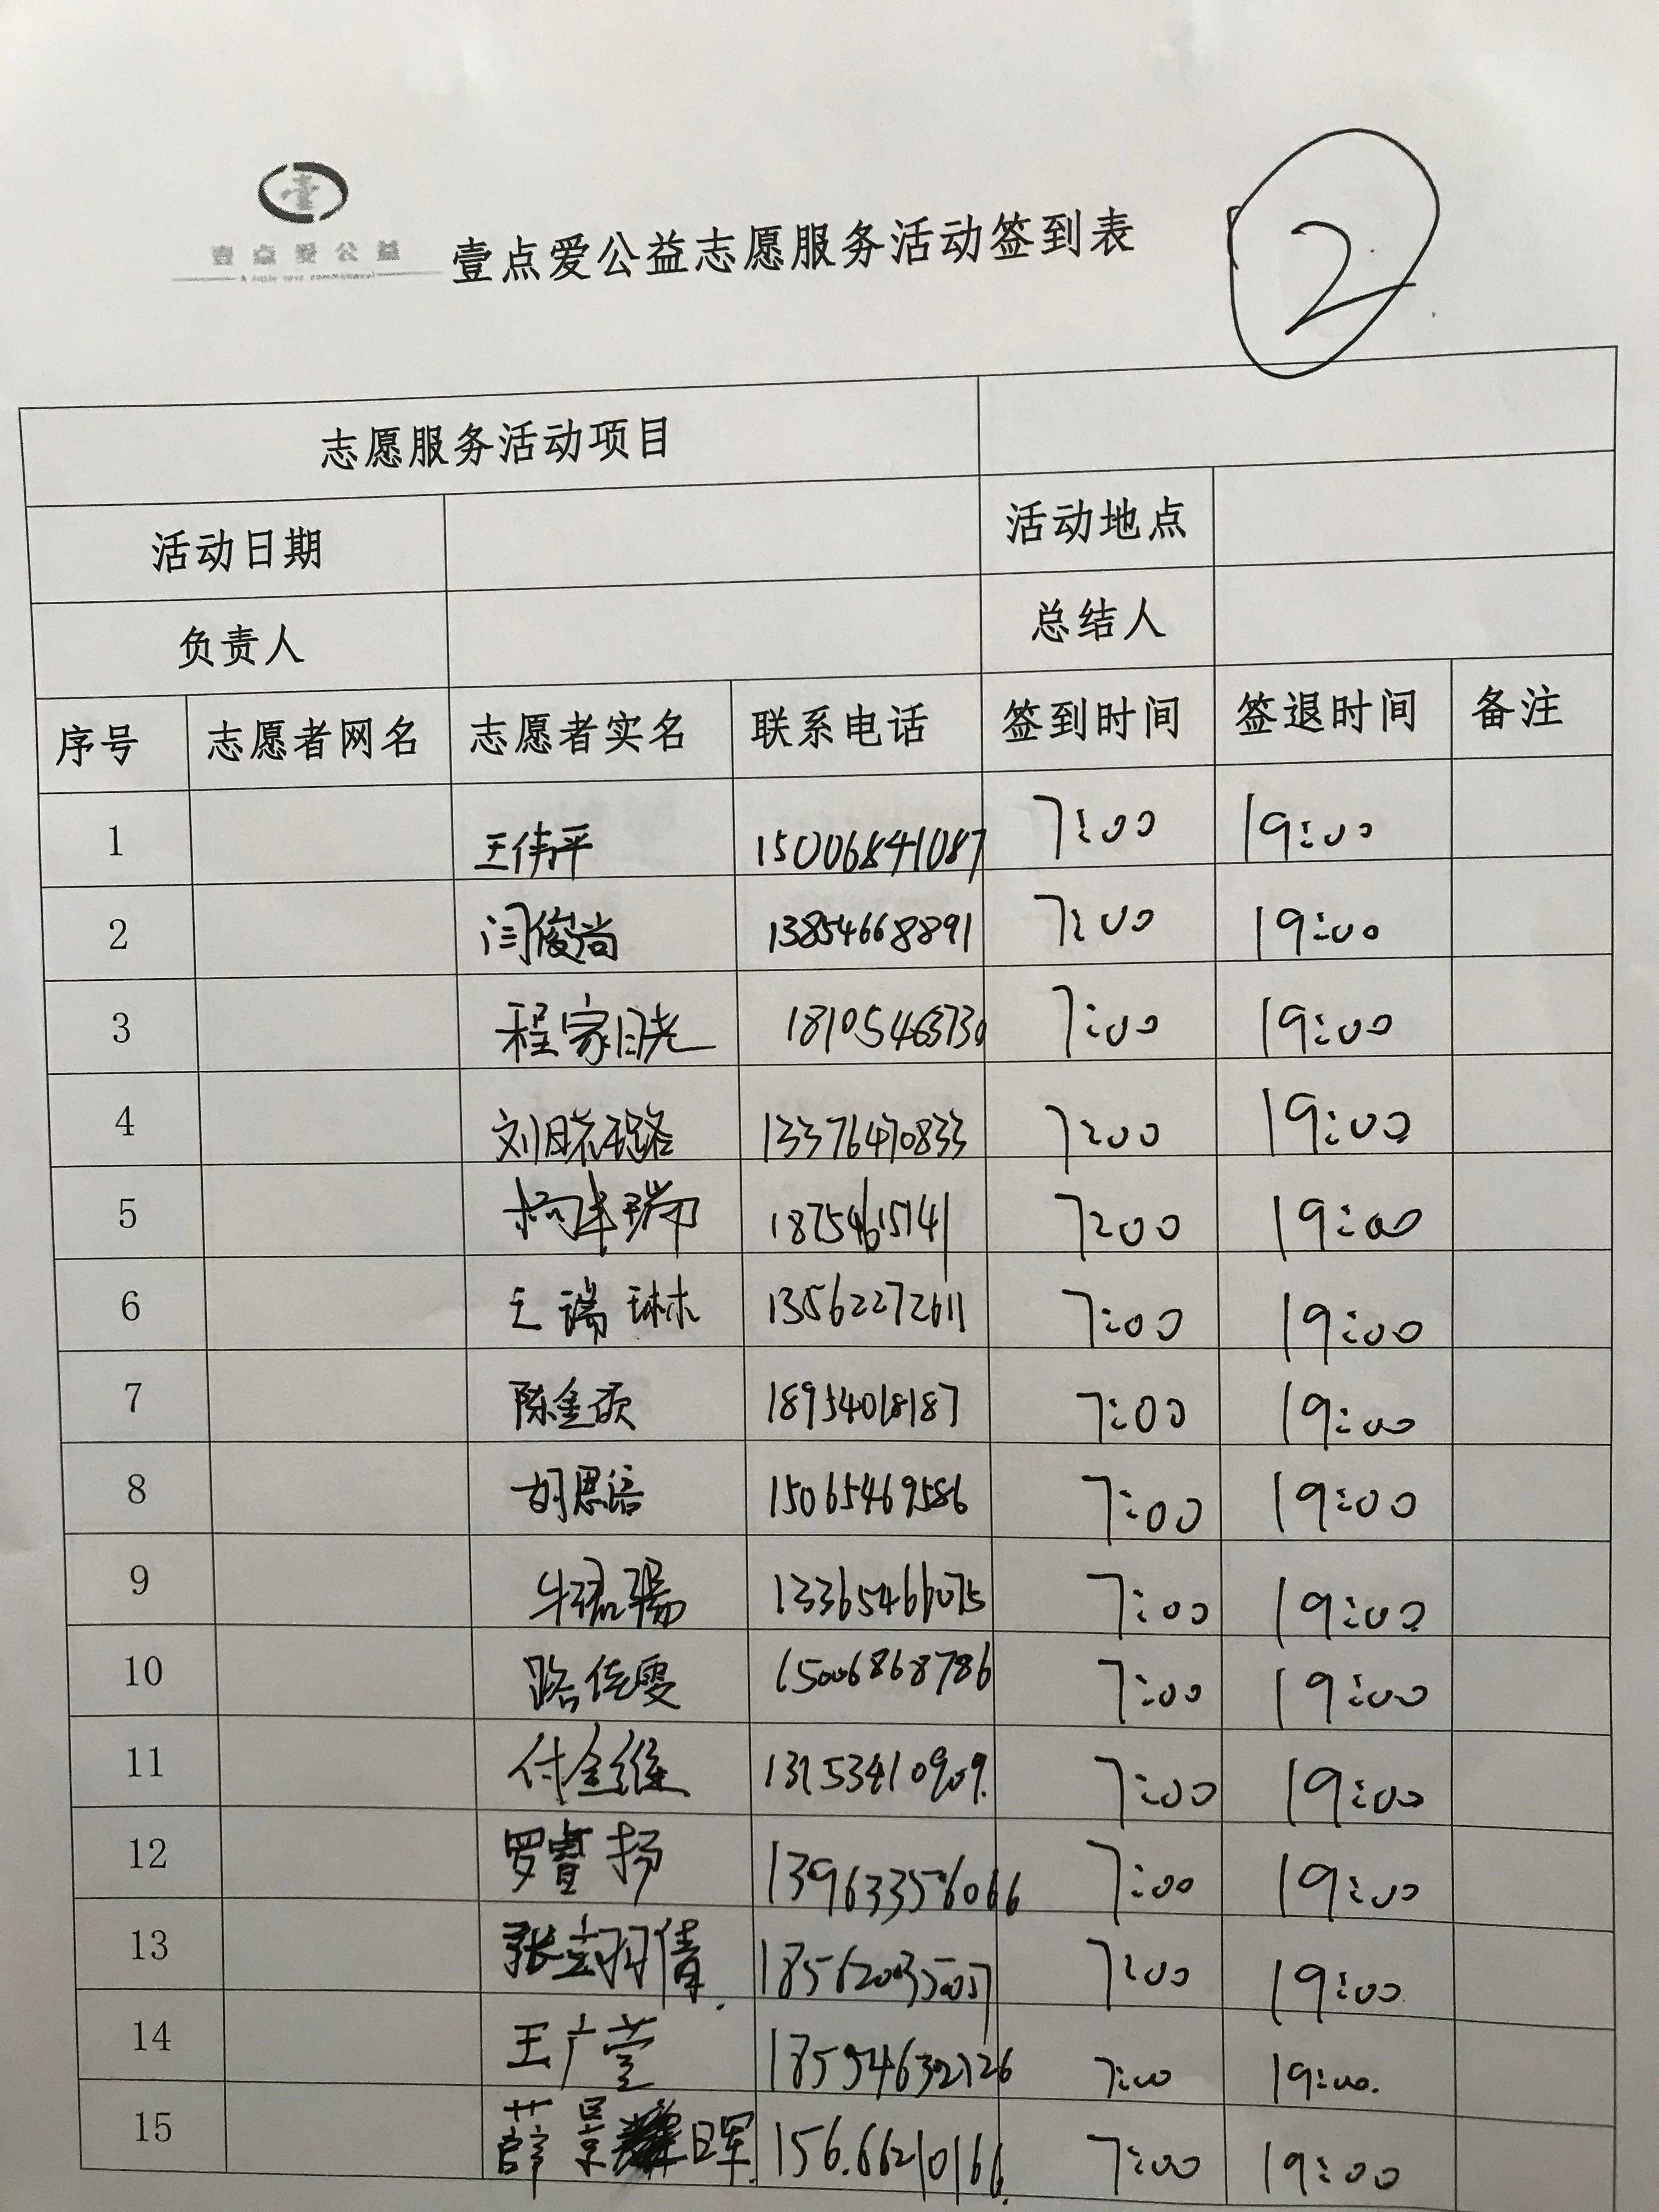 壹
壹点爱公益
壹点爱公益志愿服务活动签到表
2
志愿服务活动项目
活动日期 活动地点
负责人 总结人
序号 志愿者网名 志愿者实名 联系电话 签到时间 签退时间 备注
1 王伟平 15006841087 7:00 19:00
2 闫俊尚 13854668891 7:00 19:00
3 程家晄 18105463730 7:00 19:00
4 刘晓璐 13376470833 7:00 19:00
5 瑞 18754615141 7:00 19:00
6 王瑞琳 13562272611 7:00 19:00
7 陈金硕 18954018187 7:00 19:00
8 胡思语 15065469586 7:00 19:00
9 牛珺瑒 13365466075 7:00 19:00
10 路佳雯 15006868786 7:00 19:00
11 付金维 7:00 19:00
12 罗睿扬 13963356066 7:00 19:00
13 张 倩 18562035057 7:00 19:00
14 王广萱 18554632126 7:00 19:00
15 薛景晖 156.66210166 7:00 19:00